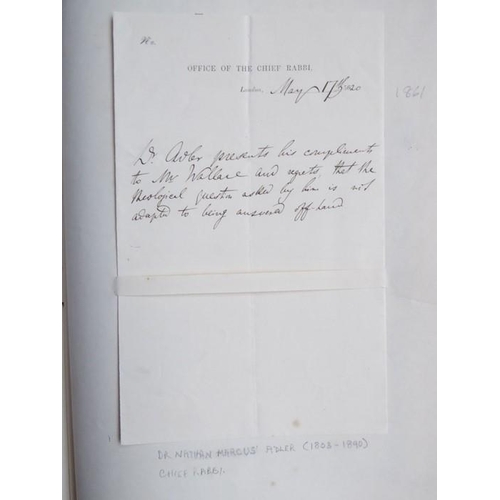 No.
OFFICE OF THE CHIEF RABBI,
London, May 17th
1861
Dr Adler presents his compliments
to Mr Wallace and regrets, that the
theological question asked by him is not
adapted to being answered off-hand
DR NATHAN MARCUS ADLER (1803-1890)
CHIEF RABBI.